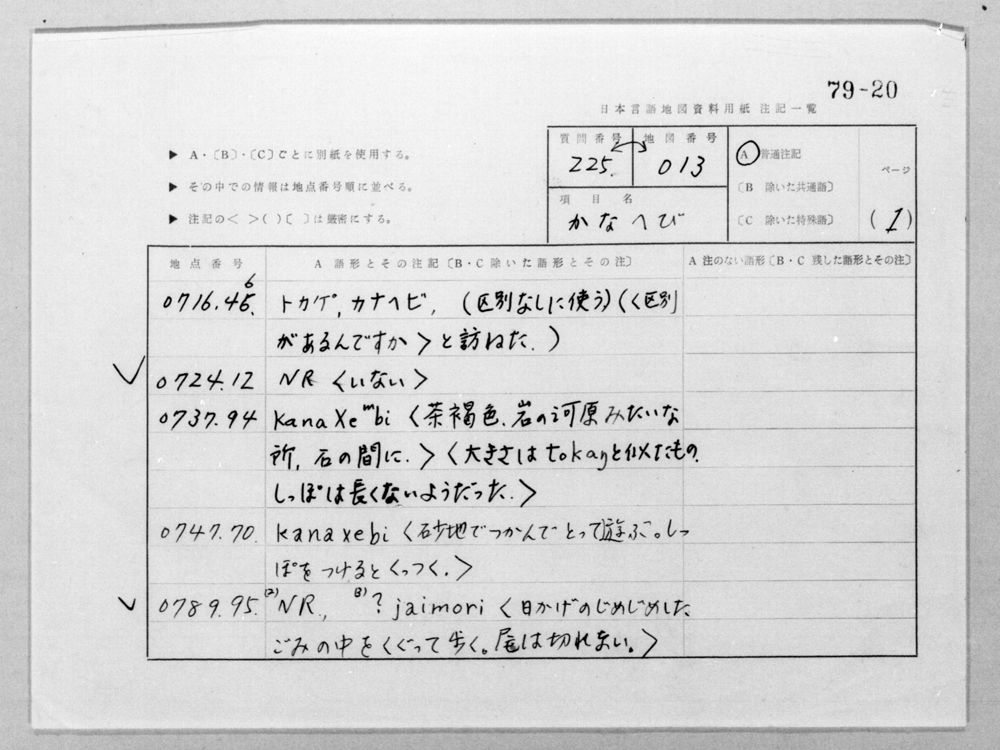 79-20
日本言語地図資料用紙 注記一覧
▶ A・〔B〕・〔C〕ごとに別紙を使用する。
▶ その中での情報は地点番号順に並べる。
▶ 注記の< >( )〔 〕は厳密にする。
質問番号 地図番号
225. 013
項目名
かなへび
A 普通注記
〔B 除いた共通語〕
〔C 除いた特殊語〕
ページ
(1)
地点番号 A 語形とその注記〔B・C 除いた語形とその注〕 A 注のない語形〔B・C 残した語形とその注〕
6
0716.45. トカゲ, カナヘビ, (区別なしに使う)(<区別
があるんですか>と訪ねた.)
✓ 0724.12 NR <いない>
0737.94 kanaXeᵐbi <茶褐色.岩の河原みたいな
所,石の間に.> <大きさはtokaŋと似たもの.
しっぽは長くないようだった.>
0747.70. kanaxebi <砂地でつかんでとって遊ぶ。しっ
ぽをつけるとくっつく.>
✓ 0789.95. (2)NR., (3)? jaimori <日かげのじめじめした
ごみの中をくぐって歩く。尾は切れない。>